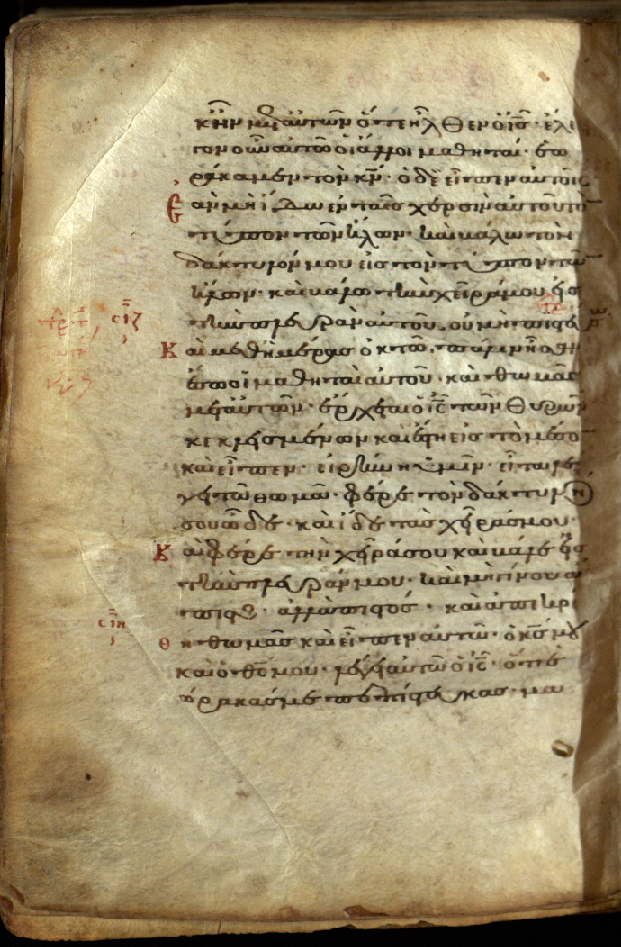 κ ἦν μετ αυτων ὅτε ἦλθεν ὁ ις· ἔλε
γον οὖν αυτῶ οἱ ἄλλοι μαθηται· ἑω
ράκαμεν τὸν κν· ὁ δὲ εἶπεν αυτοῖς
ἐὰν μὴ ἴδω ἐν ταῖς χερσὶν αυτοῦ τὸ
τύπον τῶν ἥλων· καὶ βάλω τὸν
δάκτυλόν μου εἰς τὸν τύπον τῶν
ἥλων· καὶ βάλω τὴν χεῖρά μου εἰς
τὴν πλευρὰν αυτοῦ. οὐ μὴ πιστεύ
σιζ
Και μεθ ημέρας ὀκτὼ. πάλιν ἦσ
ἔσω οἱ μαθηταὶ αυτοῦ· καὶ θωμᾶς
μετ αυτῶν· ἔρχεται ὁ ις τῶν θυρῶν
κεκλεισμένων καὶ ἔστη εἰς τὸ μέσο
καὶ εἶπεν· εἰρήνη ὑμῖν· εἶτα λέ
γει τῶ θωμᾶ· φέρε τὸν δάκτυλ
σου ὧδε· καὶ ἴδε τὰς χεῖρας μου·
Καὶ φέρε τὴν χεῖρά σου καὶ βάλε εἰς
τὴν πλευράν μου· καὶ μὴ γίνου ἄ
πιστος· ἀλλὰ πιστός· καὶ ἀπεκρί
σιη
θη θωμᾶς καὶ εἶπεν αυτῶ· ὁ κς μου
καὶ ὁ θς μου· λέγει αυτῶ ὁ ις· ὅτι ἑ
όρακάς με πεπίστευκας· μα